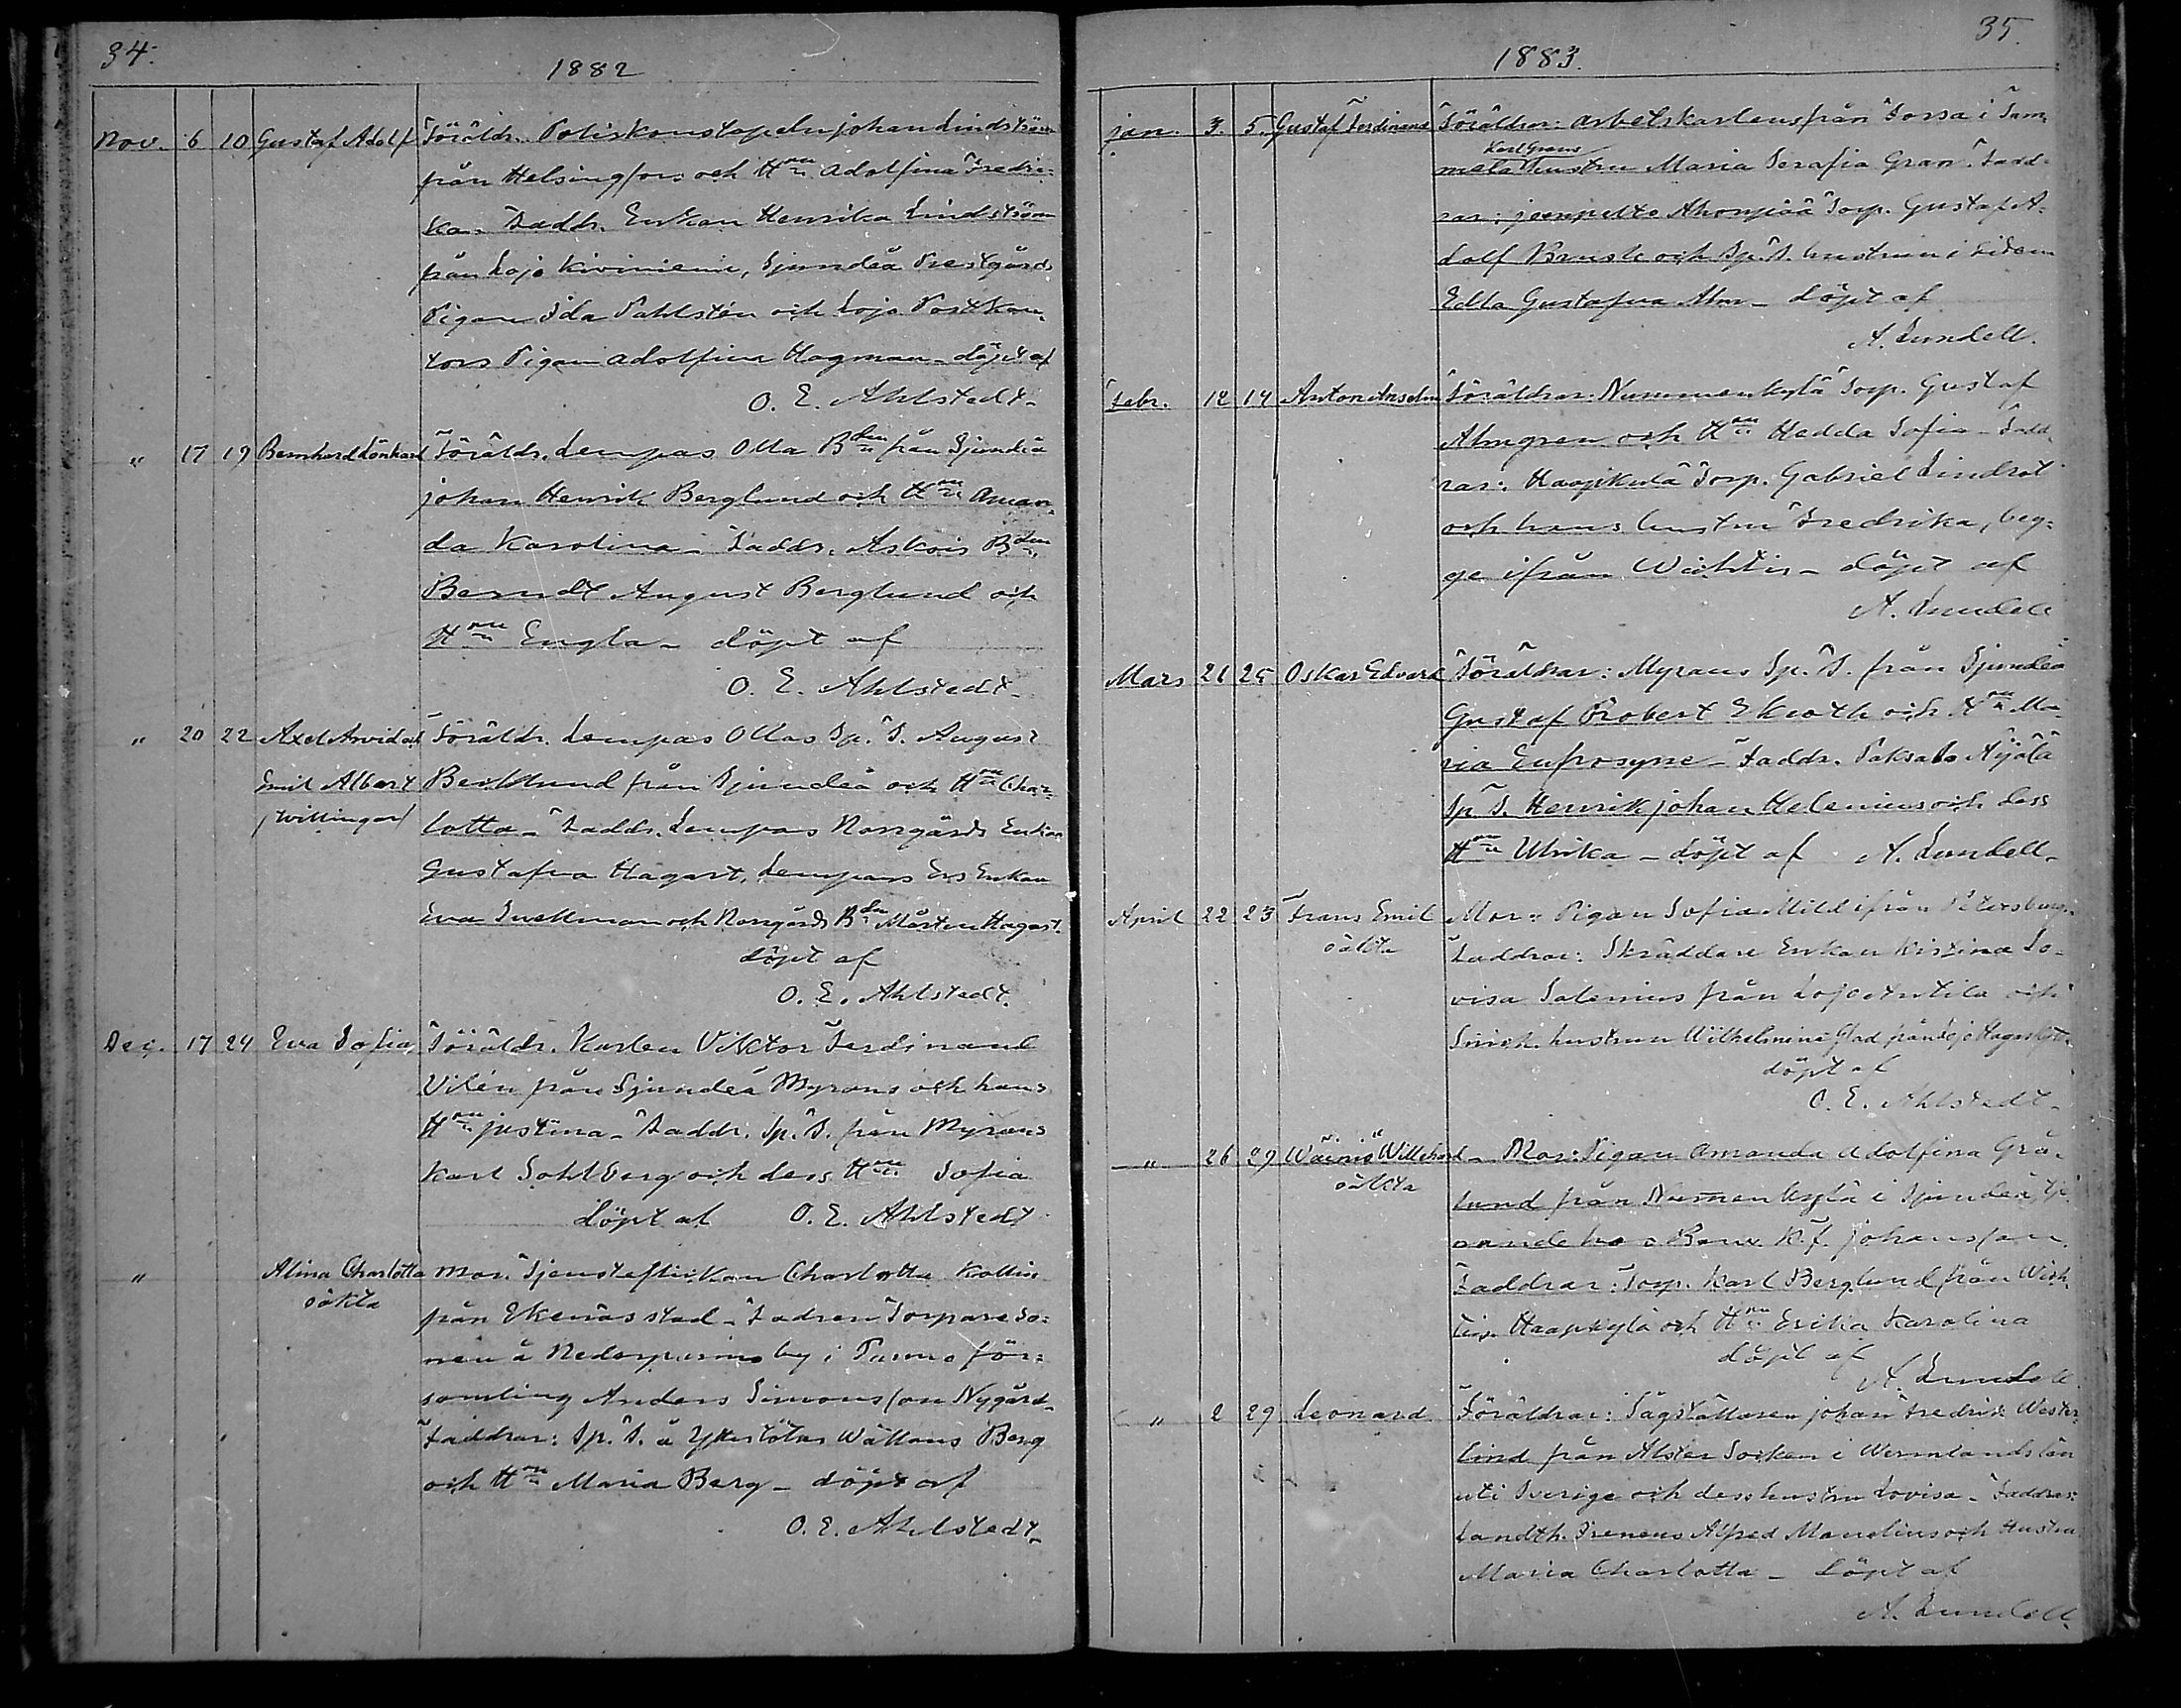 34.
1882
Nov. 6 10 Gustaf Adolf Föräldr. Poliskonstapeln johan Lindström
från Helsingfors och Hnu Adolfina Fredri=
ka. Faddr. Enkan Henrika Lindström
från Lojo Kiviniemi, Sjundeå Prestgårds
Pigan Ida Pahlstén och Lojo Postkon=
tors Pigan Adolfina Hagman – döpt af
O. E. Ahlstedt.
" 17 19 Bernhard Lönhard Föräldr. Lempas Olla Bden från Sjundeå
johan Henrik Berglund och Hnu Aman=
da Karolina – Faddr. Askois Bden
Berndt August Berglund och
Hnu Engla – döpt af
O. E. Ahlstedt
" 20 22 Axel Arvid och Föräldr. Lempas Ollas Sp. T. August
Emil Albert Berklund från Sjundeå och Hnu Char=
/tvillingar/ lotta – Faddr. Lempas Norrgårds Enkan
Gustafva Hagart, Lempans Ers Enkan
Eva Snellman och Norrgårds Bden Mårten Hagart.
döpt af
O. E. Ahlstedt.
Dec. 17 24 Eva Sofia Föräldr. Karlen Viktor Ferdinand
Vilén från Sjundeå Myrans och hans
Hnu justina – Faddr. Sp. T. från Myrans
Karl Sohlberg och dess Hnu Sofia
döpt af O. E. Ahlstedt
" Alina Charlotta Mor. Tjensteflickan Charlotta Kollin
oäkta från Ekenäs stad – Fadren Torpare So=
nen å Nederpurimo by i Pusula för=
samling Anders Simonsson Nygård.
Faddrar: Sp. T. å Wällans Berg
och Hnu Maria Berg – döpt af
O. E. Ahlstedt
35.
1883.
jan. 3. 5. Gustaf Ferdinand Föräldrar: arbetskarlens från Forsa i Tam=
Karl Grans
mela hustru Maria Serafia Gran. Fadd=
rar: Ahonpää Torp. Gustaf A=
dolf och Sp. T. hustrun
Edla Gustafva Alm – döpt af
A. Lundell.
Febr. 12 14 Anton Anselm Föräldrar: Nummenkylä Torp. Gustaf
Almgren och Hnu Hedda Sofia – Fadd=
rar: Haapkylä Torp. Gabriel Lindrot
och hans hustru Fredrika, beg=
ge ifrån Wichtis – döpt af
A. Lundell
Mars 21 25 Oskar Edvard Föräldrar: Myrans Sp. T. från Sjundeå
Gustaf Robert Ekroth och Hnu Ma=
ria Eufrosyne – Faddr. Paksalo Äijälä
Sp T. Henrik johan Helenius och dess
Hnu Ulrika – döpt af A. Lundell.
April 22 23 Frans Emil Mor: Pigan Sofia Mild ifrån Petersburg.
oäkta Faddrar: Skräddare Enkan Kristina Lo=
visa Salenius från Lojo och
Smeds hustrun Wilhelmina Glad från Lojo
döpt af
O. E. Ahlstedt.
" 26 29 Wäinö Willehard – Mor: Pigan Amanda Adolfina Grön=
oäkta lund från Nummenkylä i Sjundeå, tje=
nande hos K. F. johansson.
Faddrar: Torp. Karl Berglund från Wich=
tis Haapkylä och Hnu Erika Karolina
döpt af
A. Lundell
" 2 29 Leonard Föräldrar: Sågställaren johan Fredrik Wester=
lind från Alster Socken i Wermlands län
uti Sverige och dess hustru Lovisa – Faddrar:
Landth. Irenens Alfred Manelius och Hustru
Maria Charlotta – döpt af
A. Lundell.